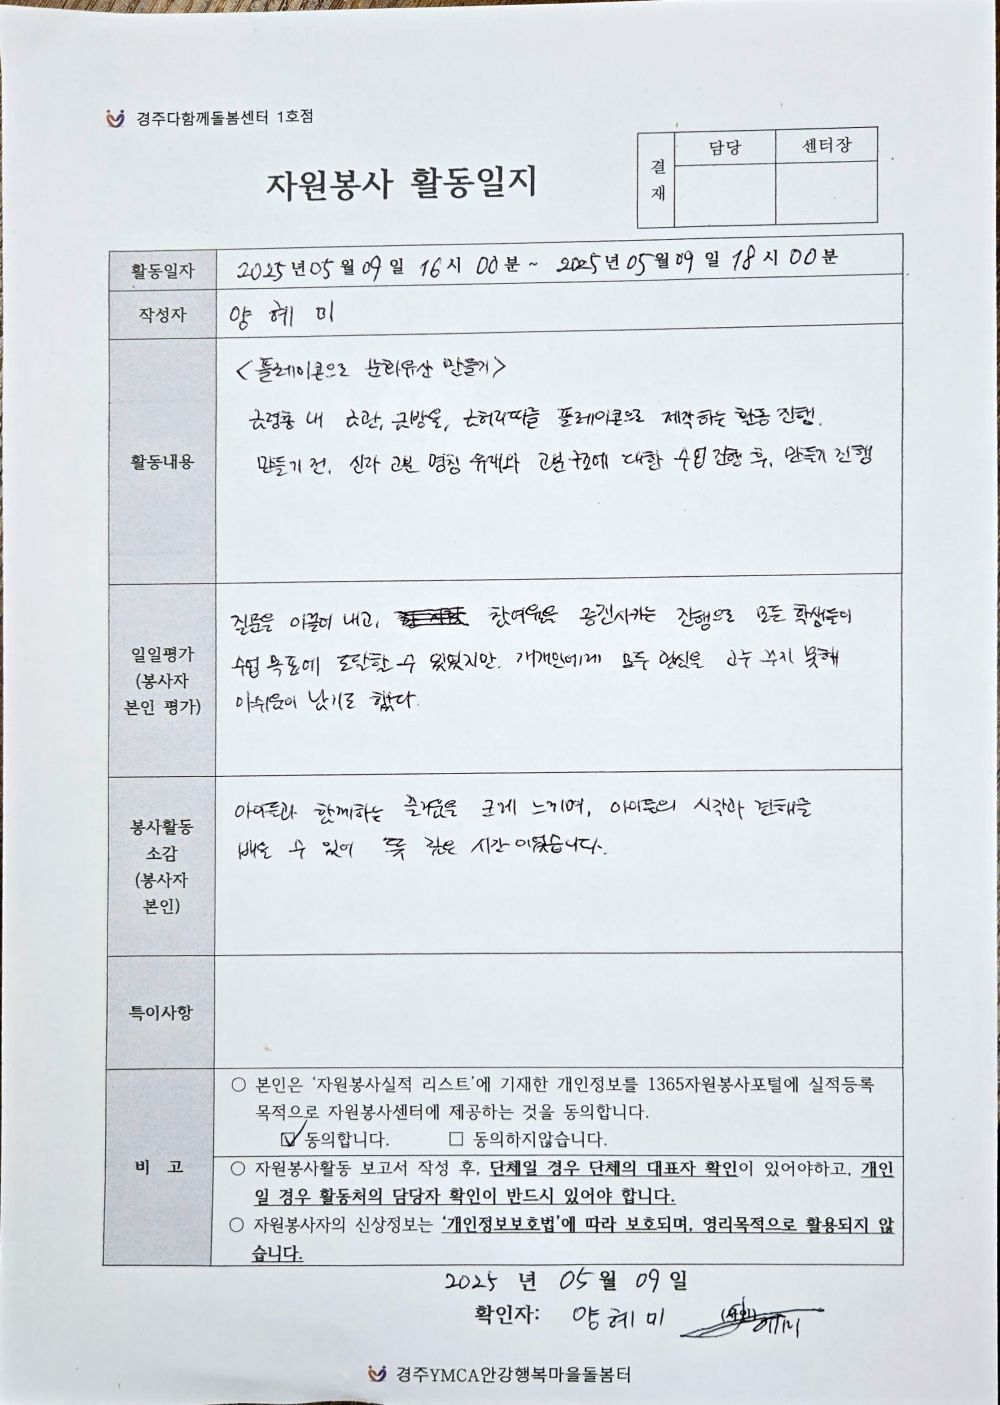 경주다함께돌봄센터 1호점
자원봉사 활동일지
결재
담당
센터장
활동일자
2025년 05월 09일 16시 00분 ~ 2025년 05월 09일 18시 00분
작성자
양 혜 미
활동내용
<플레이콘으로 문화유산 만들기>
금령총 내 금관, 금방울, 금허리띠를 플레이콘으로 제작하는 활동 진행.
만들기 전, 신라 고분 명칭 유래와 고분 구조에 대한 수업 진행 후, 만들기 진행
일일평가
(봉사자
본인 평가)
질문을 이끌어 내고, 참여율을 증진시키는 진행으로 모든 학생들이
수업 목표에 도달할 수 있었지만. 개개인에게 모두 관심을 고루 주지 못해
아쉬움이 남기도 했다.
봉사활동
소감
(봉사자
본인)
아이들과 함께하는 즐거움을 크게 느끼며, 아이들의 시각과 견해를
배울 수 있어 뜻 깊은 시간이었습니다.
특이사항
비 고
○ 본인은 '자원봉사실적 리스트'에 기재한 개인정보를 1365자원봉사포털에 실적등록
목적으로 자원봉사센터에 제공하는 것을 동의합니다.
☑ 동의합니다. □ 동의하지않습니다.
○ 자원봉사활동 보고서 작성 후, 단체일 경우 단체의 대표자 확인이 있어야하고, 개인
일 경우 활동처의 담당자 확인이 반드시 있어야 합니다.
○ 자원봉사자의 신상정보는 '개인정보보호법'에 따라 보호되며, 영리목적으로 활용되지 않
습니다.
2025 년 05월 09일
확인자: 양혜미 (서명) 혜미
경주YMCA안강행복마을돌봄터